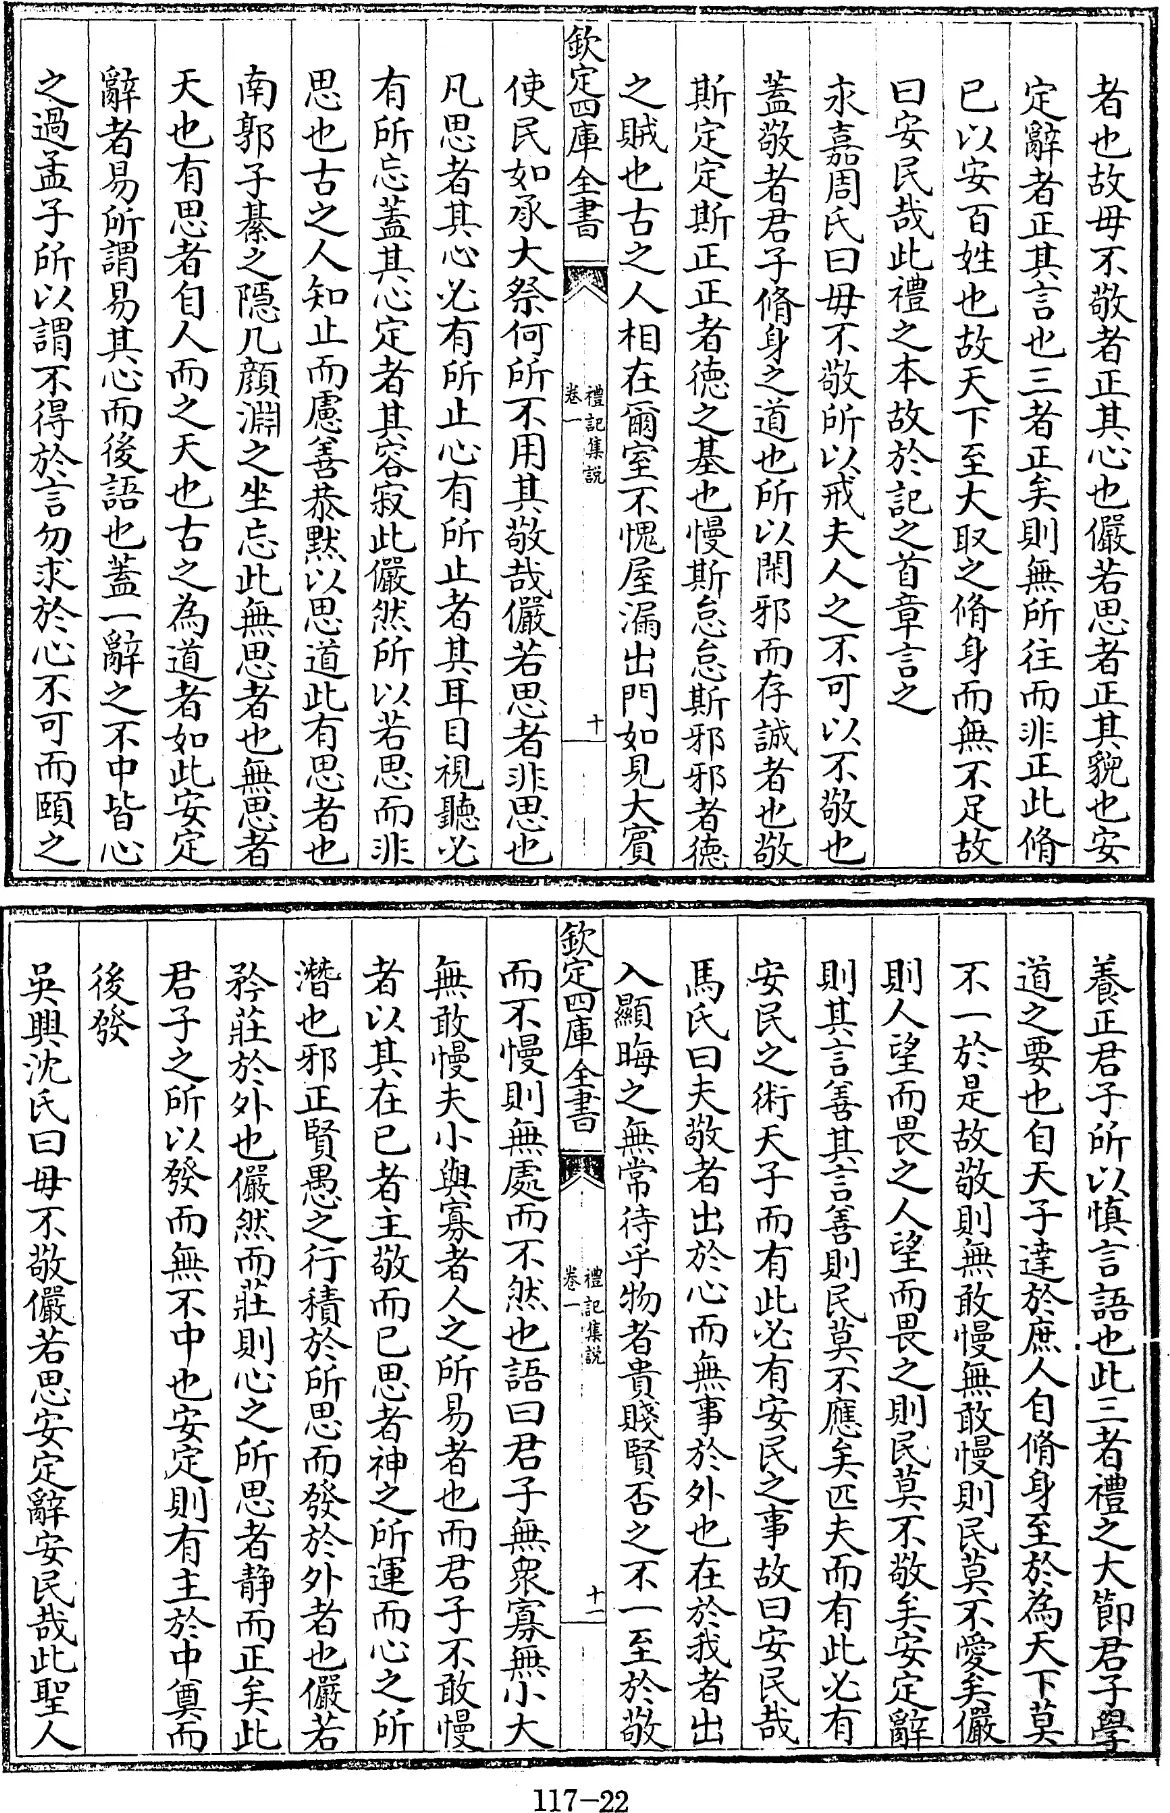 者也故毋不敬者正其心也儼若思者正其貌也安
定辭者正其言也三者正矣則無所往而非正此脩
已以安百姓也故天下至大取之脩身而無不足故
曰安民哉此禮之本故於記之首章言之
永嘉周氏曰毋不敬所以戒夫人之不可以不敬也
蓋敬者君子脩身之道也所以閑邪而存誠者也敬
斯定定斯正正者德之基也慢斯怠怠斯邪邪者德
之賊也古之人相在爾室不愧屋漏出門如見大賓
欽定四庫全書
禮記集説
卷一
十
使民如承大祭何所不用其敬哉儼若思者非思也
凡思者其心必有所止心有所止者其耳目視聽必
有所忘蓋其心定者其容寂此儼然所以若思而非
思也古之人知止而慮善恭默以思道此有思者也
南郭子綦之隱几顔淵之坐忘此無思者也無思者
天也有思者自人而之天也古之為道者如此安定
辭者易所謂易其心而後語也蓋一辭之不中皆心
之過孟子所以謂不得於言勿求於心不可而頤之
養正君子所以慎言語也此三者禮之大節君子學
道之要也自天子達於庶人自脩身至於為天下莫
不一於是故敬則無敢慢無敢慢則民莫不愛矣儼
則人望而畏之人望而畏之則民莫不敬矣安定辭
則其言善其言善則民莫不應矣匹夫而有此必有
安民之術天子而有此必有安民之事故曰安民哉
馬氏曰夫敬者出於心而無事於外也在於我者出
入顯晦之無常待乎物者貴賤賢否之不一至於敬
欽定四庫全書
禮記集説
卷一
十一
而不慢則無處而不然也語曰君子無衆寡無小大
無敢慢夫小與寡者人之所易者也而君子不敢慢
者以其在已者主敬而已思者神之所運而心之所
潛也邪正賢愚之行積於所思而發於外者也儼若
矜莊於外也儼然而莊則心之所思者靜而正矣此
君子之所以發而無不中也安定則有主於中奠而
後發
吳興沈氏曰毋不敬儼若思安定辭安民哉此聖人
117-22